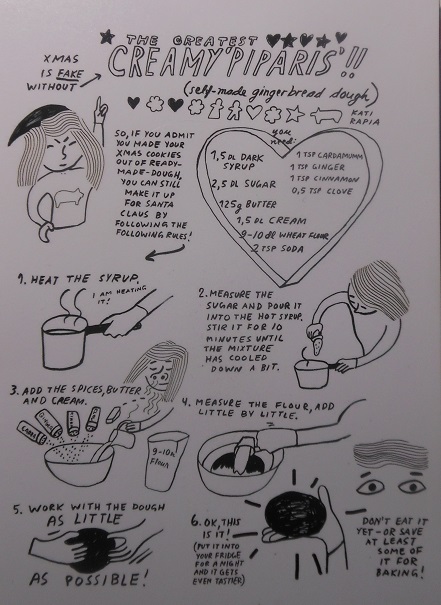 THE GREATEST
CREAMY 'PIPARIS'!!
(self-made gingerbread dough)
KATI
RAPIA
XMAS
IS FAKE
WITHOUT
SO, IF YOU ADMIT
YOU MADE YOUR
XMAS COOKIES
OUT OF READY-
MADE-DOUGH,
YOU CAN STILL
MAKE IT UP
FOR SANTA
CLAUS BY
FOLLOWING THE
FOLLOWING RULES!
you
need:
1,5 DL DARK
SYRUP
2,5 DL SUGAR
125g BUTTER
1,5 DL CREAM
9-10 dl WHEAT FLOUR
2 TSP SODA
1 TSP CARDAMUMM
1 TSP GINGER
1 TSP CINNAMON
0,5 TSP CLOVE
1. HEAT THE SYRUP.
I AM HEATING
IT!
2. MEASURE THE
SUGAR AND POUR IT
INTO THE HOT SYRUP.
STIR IT FOR 10
MINUTES UNTIL
THE MIXTURE
HAS COOLED
DOWN A BIT.
3. ADD THE SPICES, BUTTER
AND CREAM.
9-10x
FLOUR
4. MEASURE THE FLOUR, ADD
LITTLE BY LITTLE.
5. WORK WITH THE DOUGH
AS LITTLE
AS POSSIBLE!
6. OK, THIS
IS IT!
(PUT IT INTO
YOUR FRIDGE
FOR A NIGHT
AND IT GETS
EVEN TASTIER)
DON'T EAT IT
YET - OR SAVE
AT LEAST
SOME OF
IT FOR
BAKING!